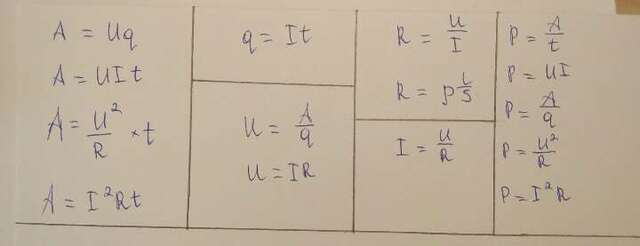 A = Uq
A = UIt
A = U²/R × t
A = I²Rt
q = It
U = A/q
U = IR
R = U/I
R = ρ l/S
I = U/R
P = A/t
P = UI
P = A/q
P = U²/R
P = I²R